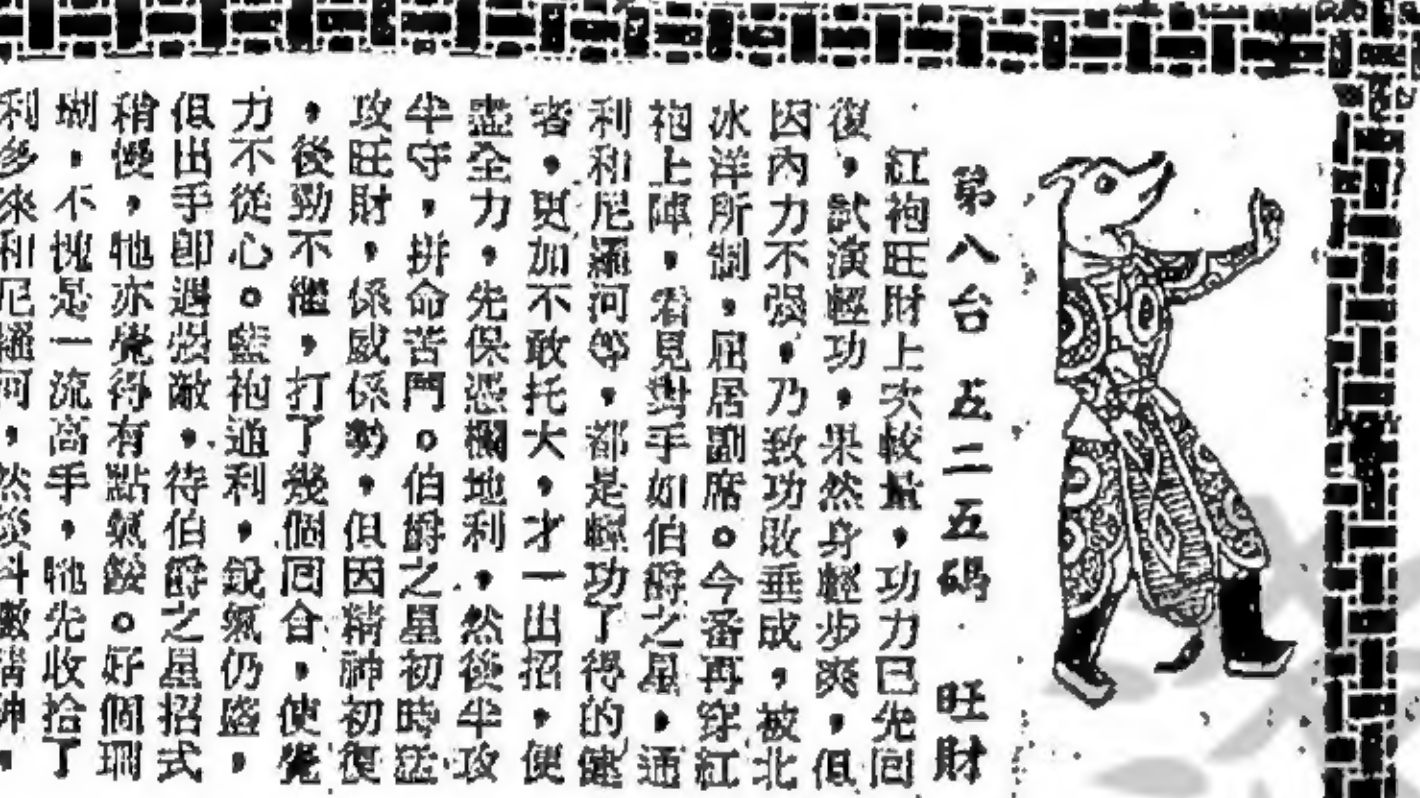 第八台 五二五碼 旺財
紅袍旺財上次較量，功力已先回
復，試演輕功，果然身輕步爽，但
因內力不强，乃致功敗垂成，被北
冰洋所制，屈居副席。今番再穿紅
袍上陣，君見對手如伯爵之星，通
利和尼羅河等，都是輕功了得的健
者，更加不敢托大，才一出招，便
盡全力，先保憑欄地利，然後半攻
半守，拼命苦鬥。伯爵之星初時猛
攻旺財，係威係勢，但因精神初復
，後勁不繼，打了幾個回合，便覺
力不從心。藍袍通利，銳氣仍盛，
但出手即遇强敵，待伯爵之星招式
稍慢，牠亦覺得有點氣餒。好個珊
瑚，不愧是一流高手，牠先收拾了